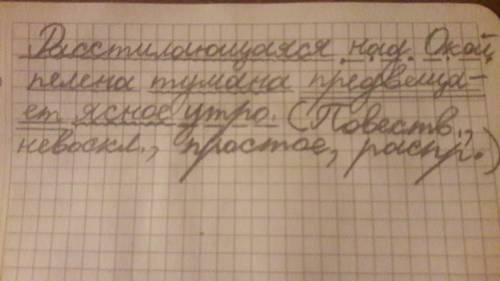 Расстилающаяся над Окой
пелена тумана предвеща-
ет ясное утро. (Повеств.,
невоскл., простое, распр.)